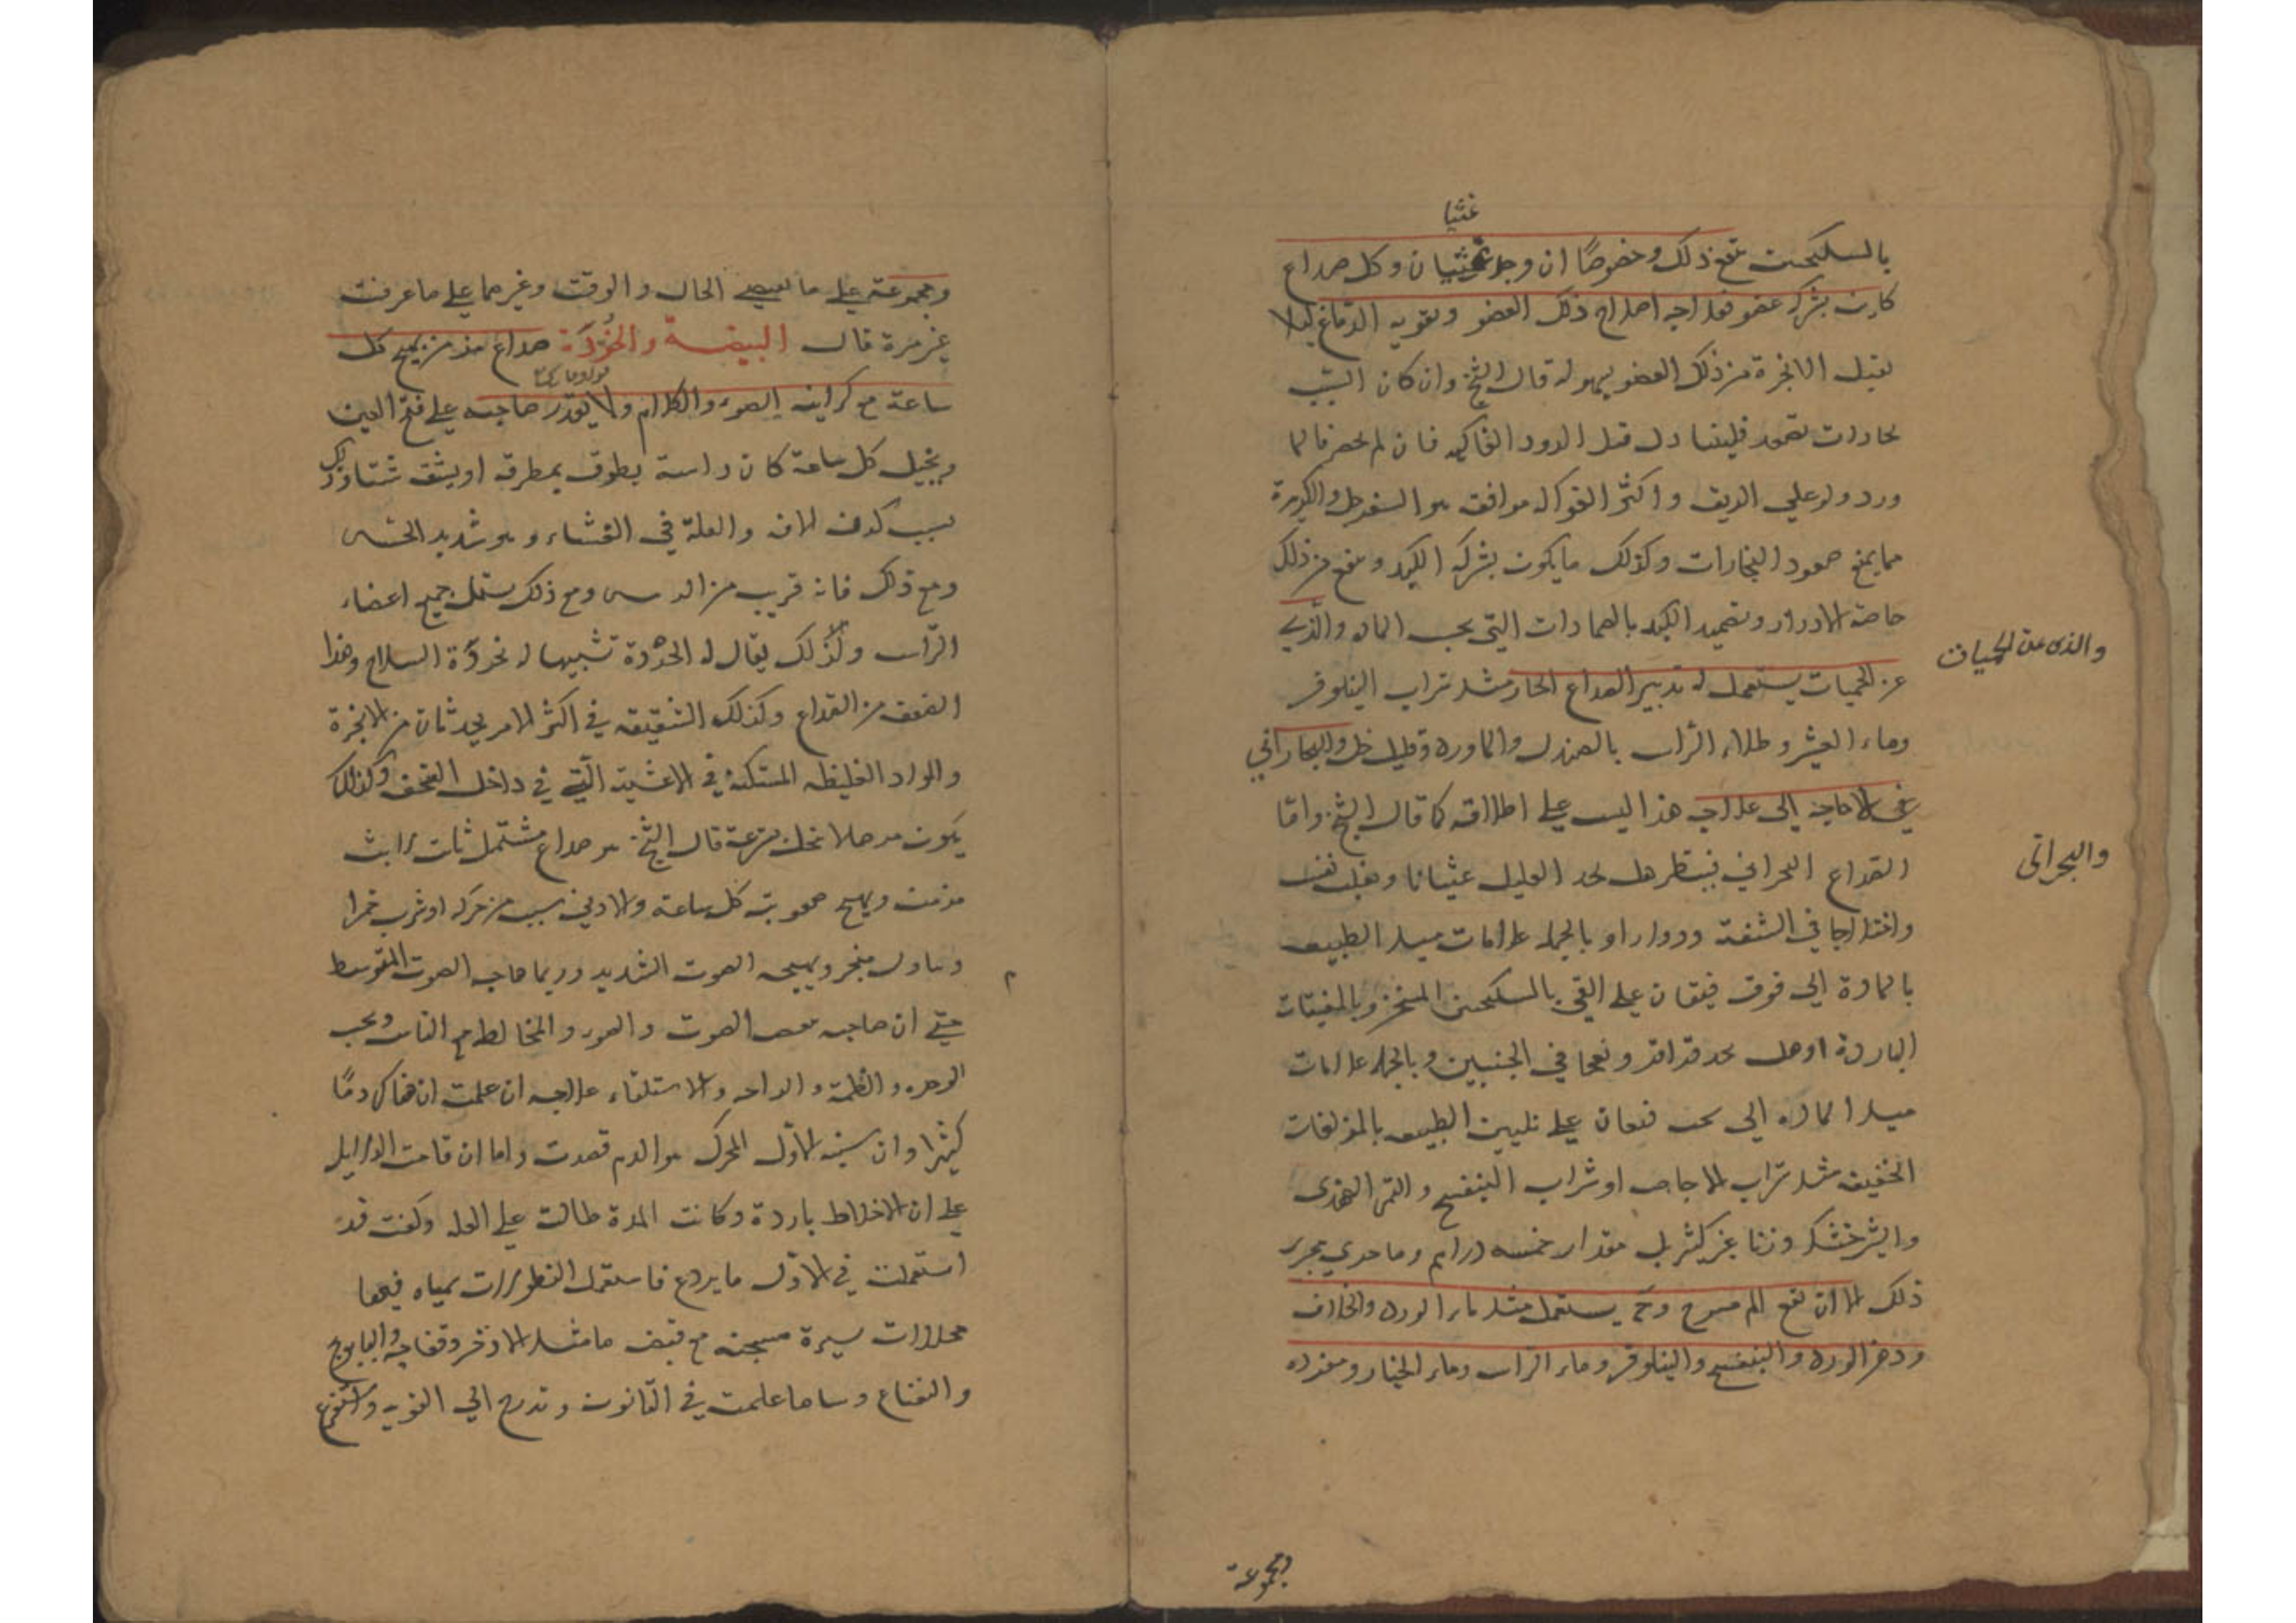 غثيا
بالسكنجبين ينفع ذلك وخصوصًا ان وجد غثيان وكل صداع
كان بشركة عضو فعلاجه اصلاح ذلك العضو وتقوية الدماغ ليلا
يقبل الابخرة من ذلك العضو بسهولة قال الشيخ وان كان السبب
بخارات تصعد فليتناول قبل الدور الفاكهة فان لم يحضر فالما
ورد ولو على الريق واكثر الفواكه موافقة هو السفرجل والكزبرة
مما يمنع صعود البخارات وكذلك ما يكون بشركة الكبد وينفع من ذلك
خاصة الادرار وتضميد الكبد بالضمادات التي بحسب المادة والذي
والذى عن الحميات
عن الحميات يستعمل له تدبير الصداع الحار مثل شراب النيلوفر
وماء الشعير وطلاء الراس بالصندل والماورد وقليل خل والبحراني
غني لا حاجة الى علاجه هذا ليس على اطلاقه كما قال الشيخ واما
والبحرانى
الصداع البحراني فينظر هل يجد العليل غثيانا وتقلب نفس
واختلاجا في الشفة ودوارا او بالجملة علامات ميل الطبيعة
بالمادة الى فوق فيعان على القي بالسكنجبين المسخن وبالمقيئات
الباردة او هل يجد قراقر ونفخا في الجنبين وبالجملة علامات
ميل المادة الى تحت فيعان على تليين الطبيعة بالمزلقات
الخفيفة مثل شراب الاجاص او شراب البنفسج والتمر الهندى
والشيرخشك وزنا غير كثير بل مقدار خمسة دراهم وما جرى مجرى
ذلك الا ان يقع الم مبرح وح يستعمل مثل ماء الورد والخلاف
ودهن الورد والبنفسج والنيلوفر وماء الراس وماء الخيار ومفردة
ومجموعة
ومجموعة على ما تقتضي الحال والوقت وغيرهما على ما عرفت
غير مرة قال البيضة والخوذة صداع مزمن يهيج كل
ساعة مع كراهية الضوء والكلام ولا يقدر صاحبه على فتح العين
ويخيل كل ساعة كان راسه يطرق بمطرقة او يشق شقا وذلك
بسبب كون المادة والعلة في الغشاء وهو شديد الحس
ومع ذلك فانه قريب من الراس ومع ذلك يشمل جميع اعضاء
الراس ولذلك يقال له الخوذة تشبيها له بخوذة السلاح وهذا
الصنف من الصداع وكذلك الشقيقة في اكثر الامر يحدثان من الابخرة
والمواد الغليظة المستكنة في الاغشية التي في داخل القحف وكذلك
يكون مرضا لا ينحل بسرعة قال الشيخ هو صداع مشتمل ثابت لابث
مزمن ويهيج صعوبته كل ساعة ولادنى سبب من حركة او شرب خمر او
وتناول مبخر ويهيجه الصوت الشديد وربما هاجه الصوت المتوسط
م
حتى ان صاحبه يبغض الصوت والضوء والمخالطة مع الناس ويحب
الوحدة والظلمة والراحة والاستلقاء علاجه ان علمت ان هناك دمًا
كثيرا وان سببه الاول المحرك هو الدم فصدت واما ان قامت الدلايل
على ان الاخلاط باردة وكانت المدة طالت على العلة وكنت قد
استعملت في الاول ما يردع فاستعمل النطولات بمياه فيها
محللات يسيرة مسخنة مع قبض ما مثل الاذخر وفقاحه والبابونج
والنعناع وساير ما علمت في القانون وتدرج الى القوية واستفرغ